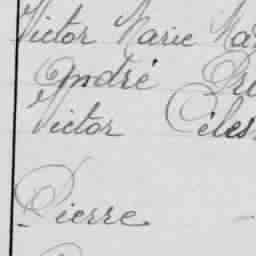 Victor Marie Ma
André
Victor Céles
Pierre